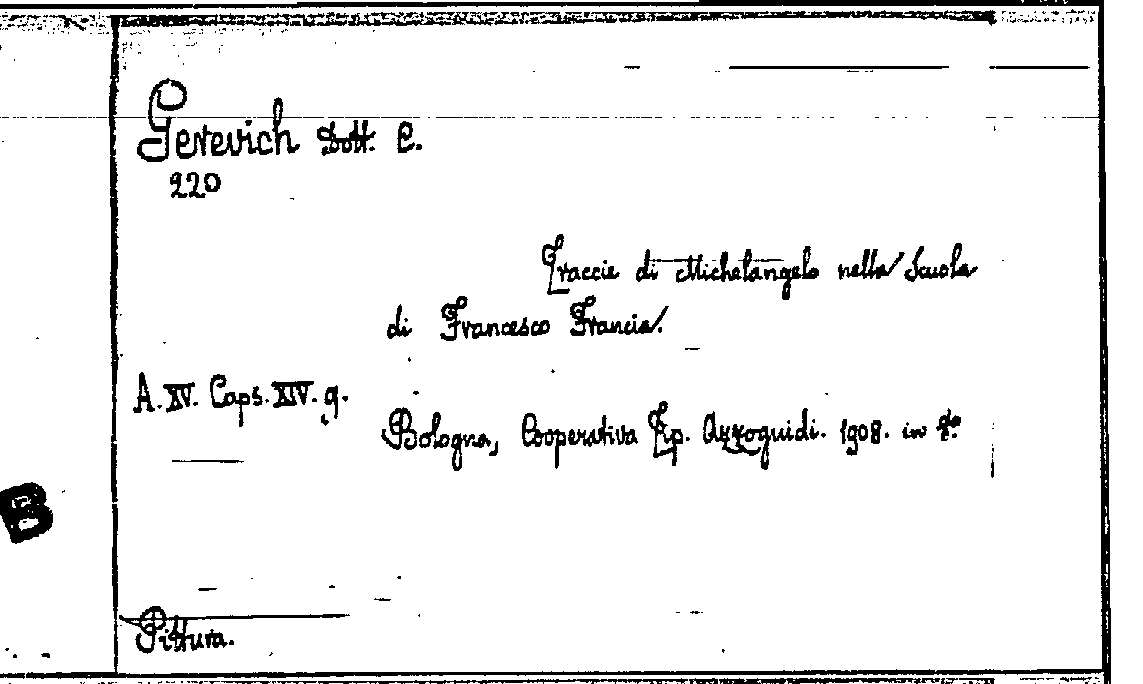 Gerevich Dott. E.
220
Traccie di Michelangelo nella Scuola
di Francesco Francia.
A. XV. Caps. XIV. 9.
Bologna, Cooperativa Tip. Azzoguidi. 1908. in
Pittura.
B